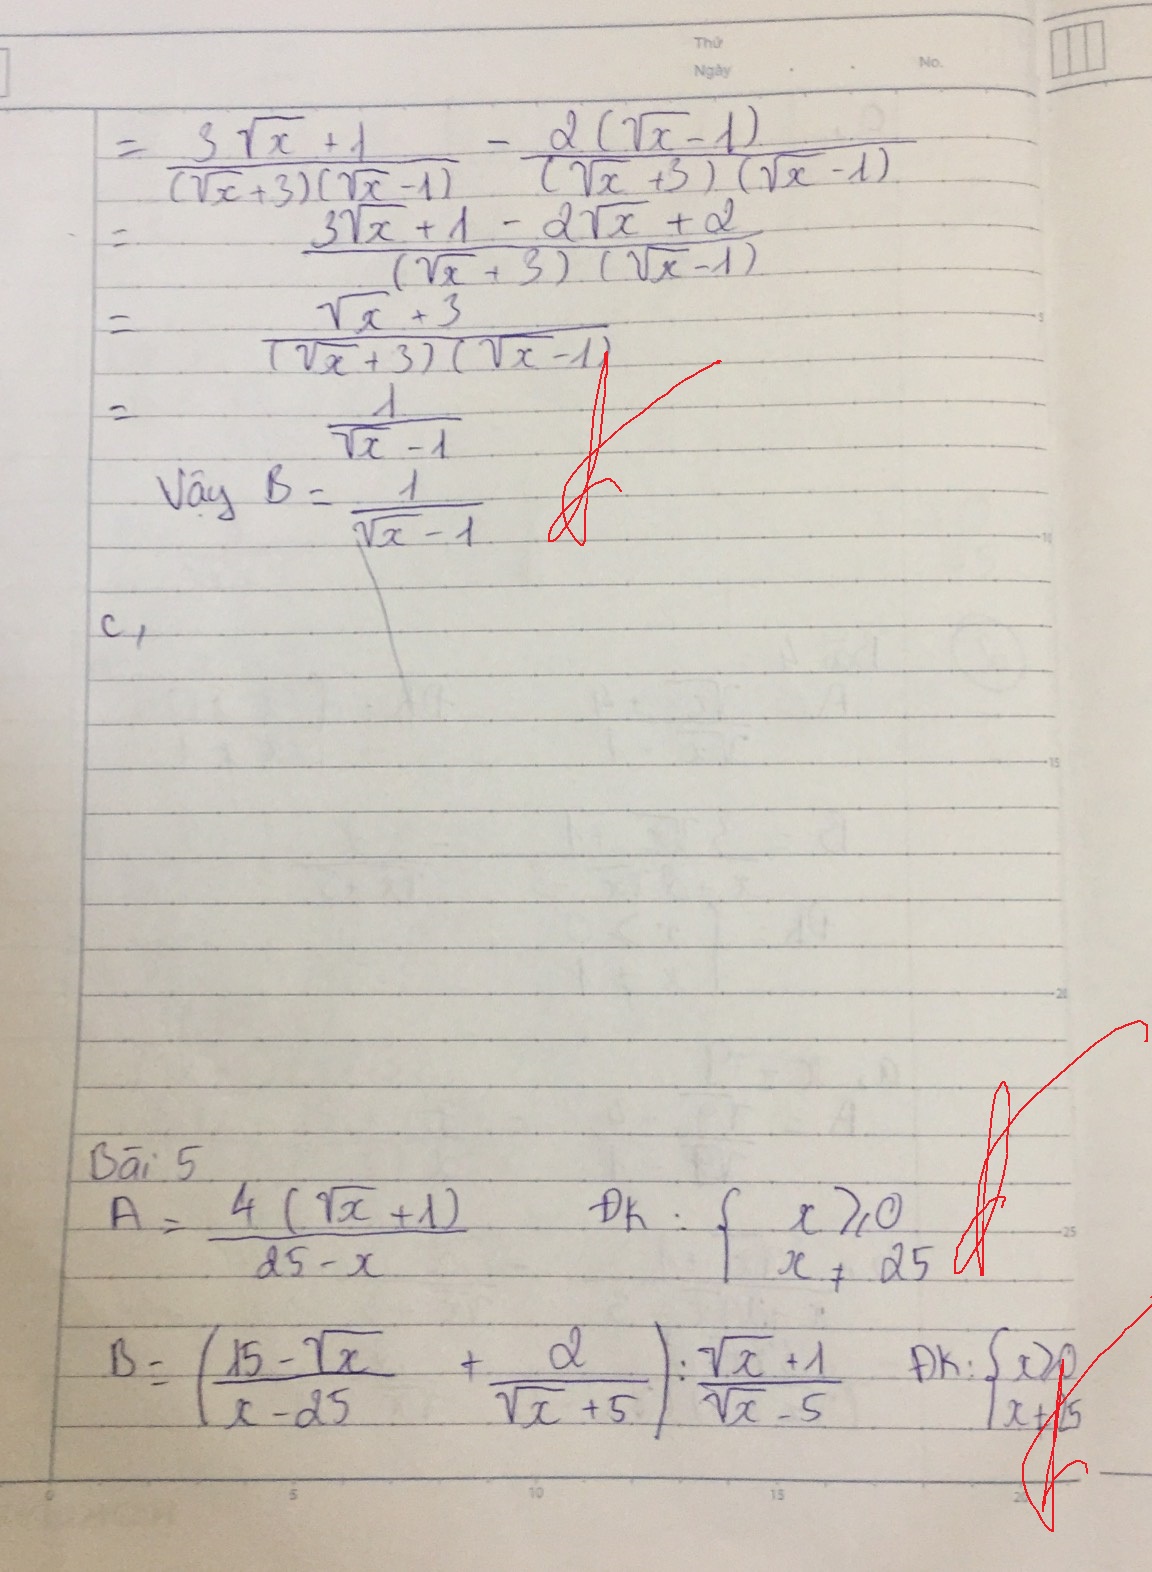 Thứ
Ngày . . No.
= (3√x + 1)/((√x + 3)(√x - 1)) - (2(√x - 1))/((√x + 3)(√x - 1))
= (3√x + 1 - 2√x + 2)/((√x + 3)(√x - 1))
= (√x + 3)/((√x + 3)(√x - 1))
= 1/(√x - 1)
Vậy B = 1/(√x - 1)
c,
Bài 5
A = (4(√x + 1))/(25 - x) ĐK: { x ⩾ 0
x ≠ 25
B = ((15 - √x)/(x - 25) + 2/(√x + 5)) : (√x + 1)/(√x - 5) ĐK: { x ⩾ 0
x ≠ 25
5
10
15
20
25
0 5 10 15 20